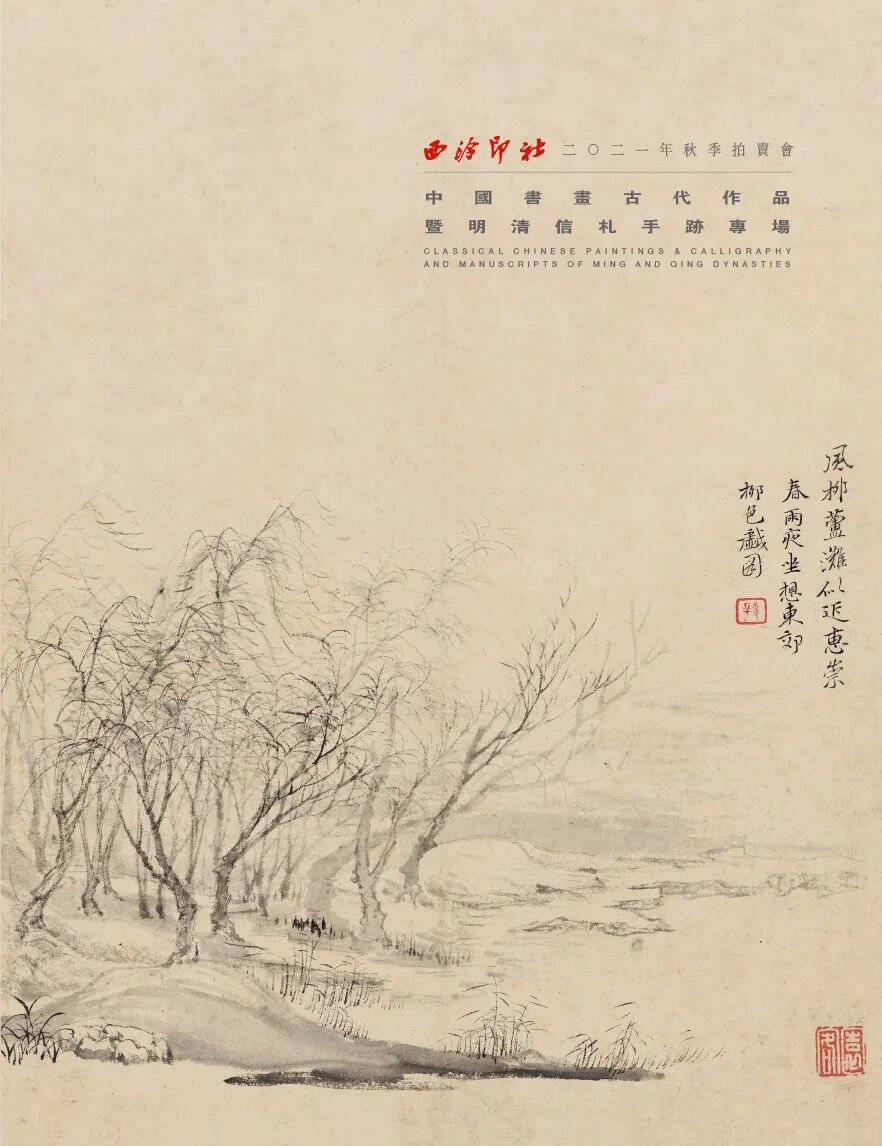 西泠印社 二〇二一年秋季拍賣會
中國書畫古代作品
暨明清信札手跡專場
CLASSICAL CHINESE PAINTINGS & CALLIGRAPHY
AND MANUSCRIPTS OF MING AND QING DYNASTIES
風柳蘆灘似近惠崇
春雨夜坐想東郊
柳色戲圖